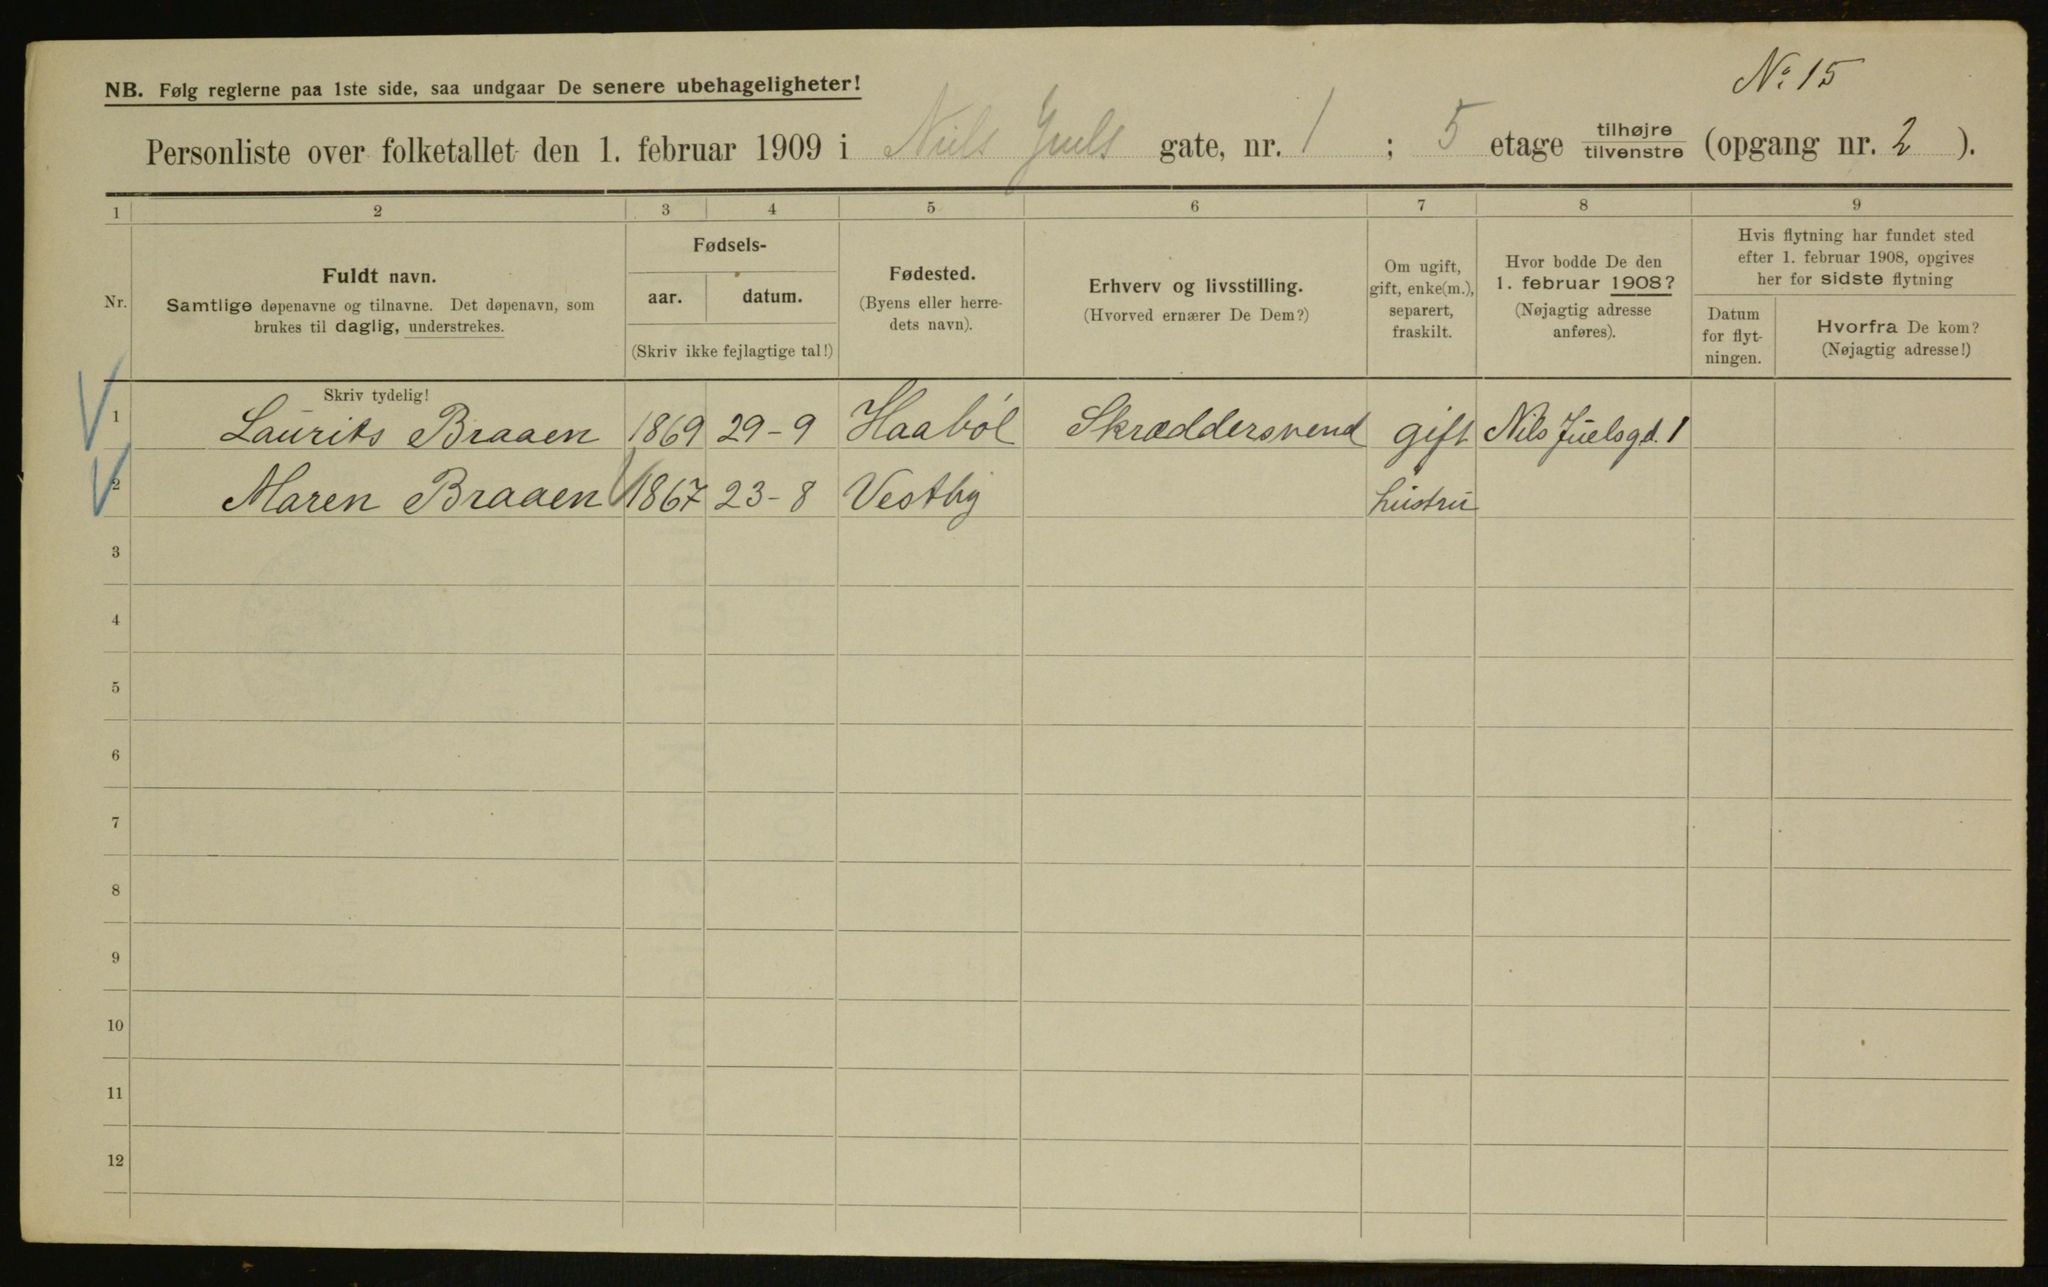 Nº 15
NB. Følg reglerne paa 1ste side, saa undgaar De senere ubehageligheter!
Personliste over folketallet den 1. februar 1909 i Niels Juels gate, nr. 1 ; 5 etage tilhøjre/tilvenstre (opgang nr. 2 ).
1 2 3 4 5 6 7 8 9
Nr.
Fuldt navn.
Samtlige døpenavne og tilnavne. Det døpenavn, som
brukes til daglig, understrekes.
Fødsels-
aar. datum.
(Skriv ikke fejlagtige tal!)
Fødested.
(Byens eller herre-
dets navn).
Erhverv og livsstilling.
(Hvorved ernærer De Dem?)
Om ugift,
gift, enke(m.),
separert,
fraskilt.
Hvor bodde De den
1. februar 1908?
(Nøjagtig adresse
anføres).
Hvis flytning har fundet sted
efter 1. februar 1908, opgives
her for sidste flytning
Datum
for flyt-
ningen.
Hvorfra De kom?
(Nøjagtig adresse!)
Skriv tydelig!
1 Laurits Braaen 1869 29-9 Haabøl Skræddersvend gift Nils Juelsgd. 1
2 Maren Braaen 1867 23-8 Vestby hustru
3
4
5
6
7
8
9
10
11
12